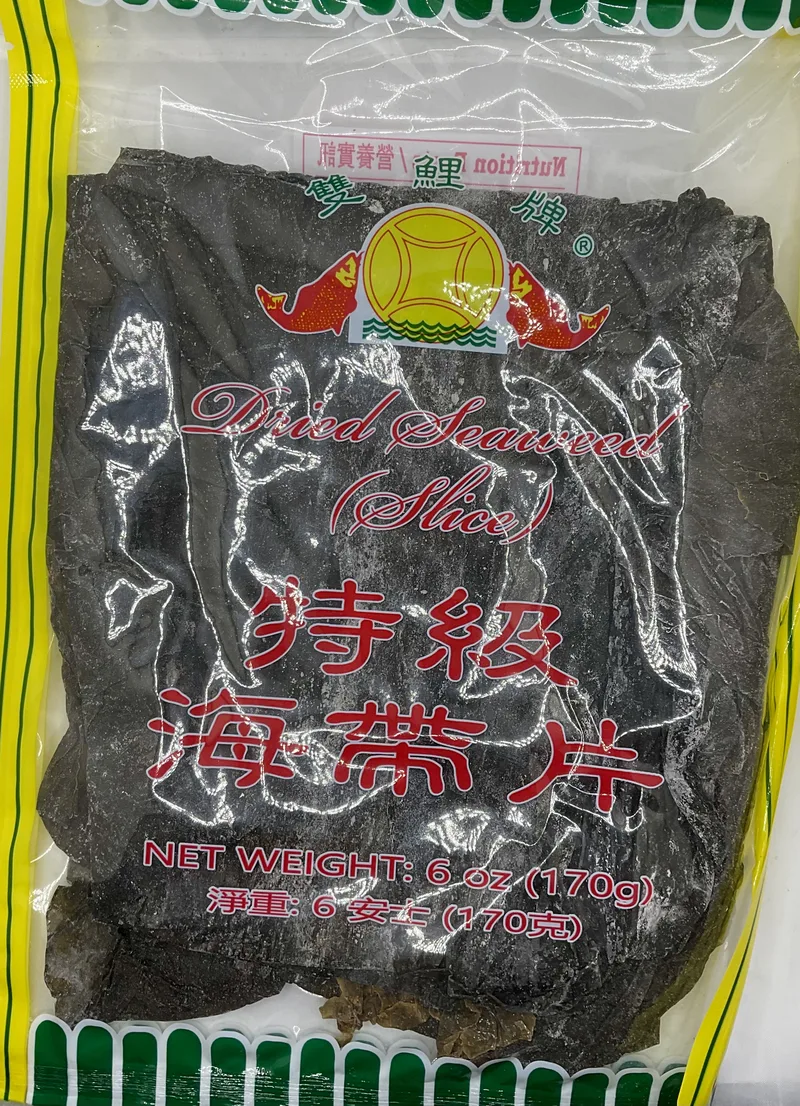 Nutrition / 營養資訊
雙鯉牌®
Dried Seaweed
(Slice)
特級
海帶片
NET WEIGHT: 6 oz (170g)
淨重: 6 安士 (170克)